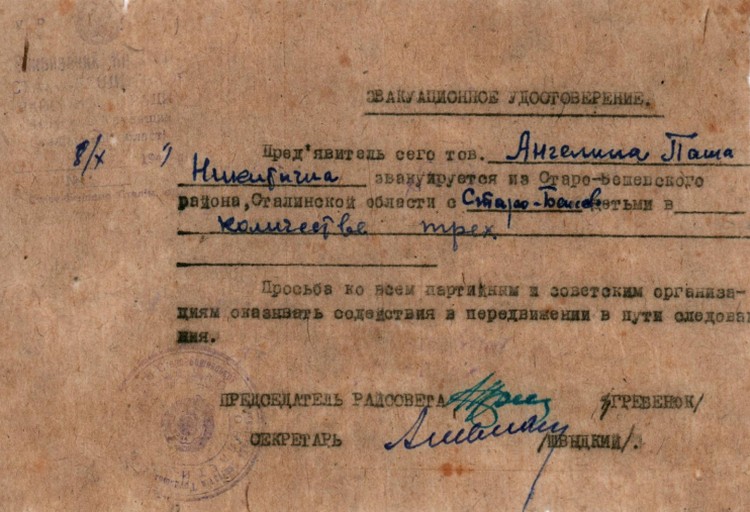 ЭВАКУАЦИОННОЕ УДОСТОВЕРЕНИЕ.
8/X
Пред'явитель сего тов. Ангелина Паша
Никитична эвакуируется из Старо-Бешевского
района, Сталинской области с Старо-Бешев детьми в
количестве трех
Просьба ко всем партийным и советским организа-
циям оказывать содействия в передвижении в пути следова
ния.
ПРЕДСЕДАТЕЛЬ РАЙСОВЕТА /ГРЕБЕНЮК/
СЕКРЕТАРЬ /ШВЫДКИЙ/.